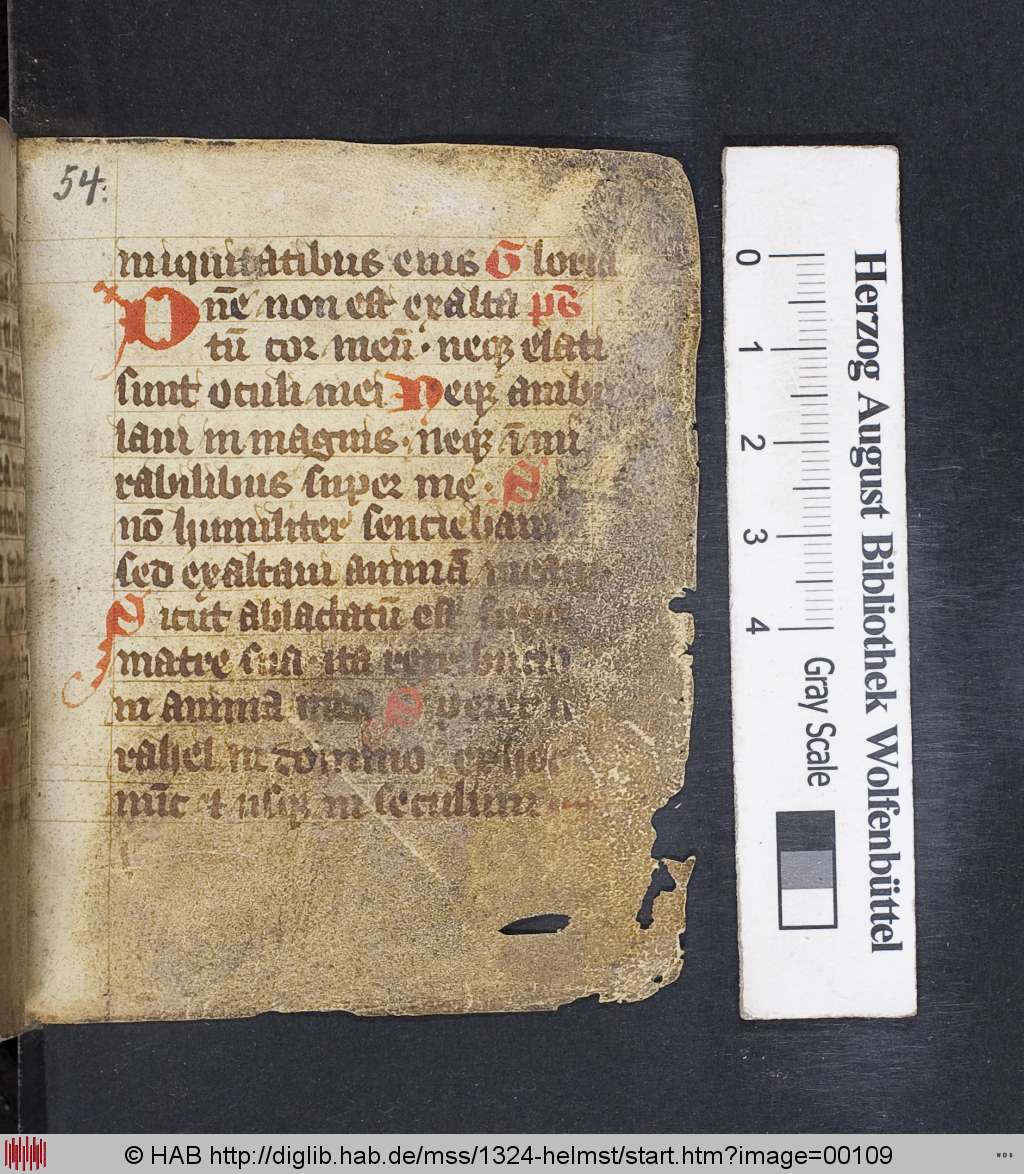 54.
iniquitatibus eius Gloria
Dñe non est exalta ps
tū cor meū · neqʒ elati
sunt oculi mei Neqʒ ambu
laui in magnis · neqʒ ī mi
rabilibus super me · S
nō humiliter senciebam
sed exaltaui animā meam
Sicut ablactatū est super
matre sua · ita retribucio
in anima mea Speret is
rahel in domino ex hoc
nūc et usqʒ in seculum
0 1 2 3 4
Gray Scale
Herzog August Bibliothek Wolfenbüttel
© HAB http://diglib.hab.de/mss/1324-helmst/start.htm?image=00109
WDB